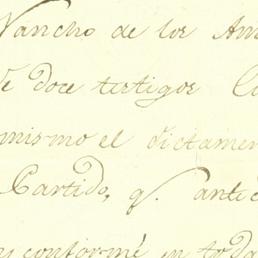 Nancho de los Am
de doce testigos C
mismo el dictamen
Partido, q. antec
conformé en toda